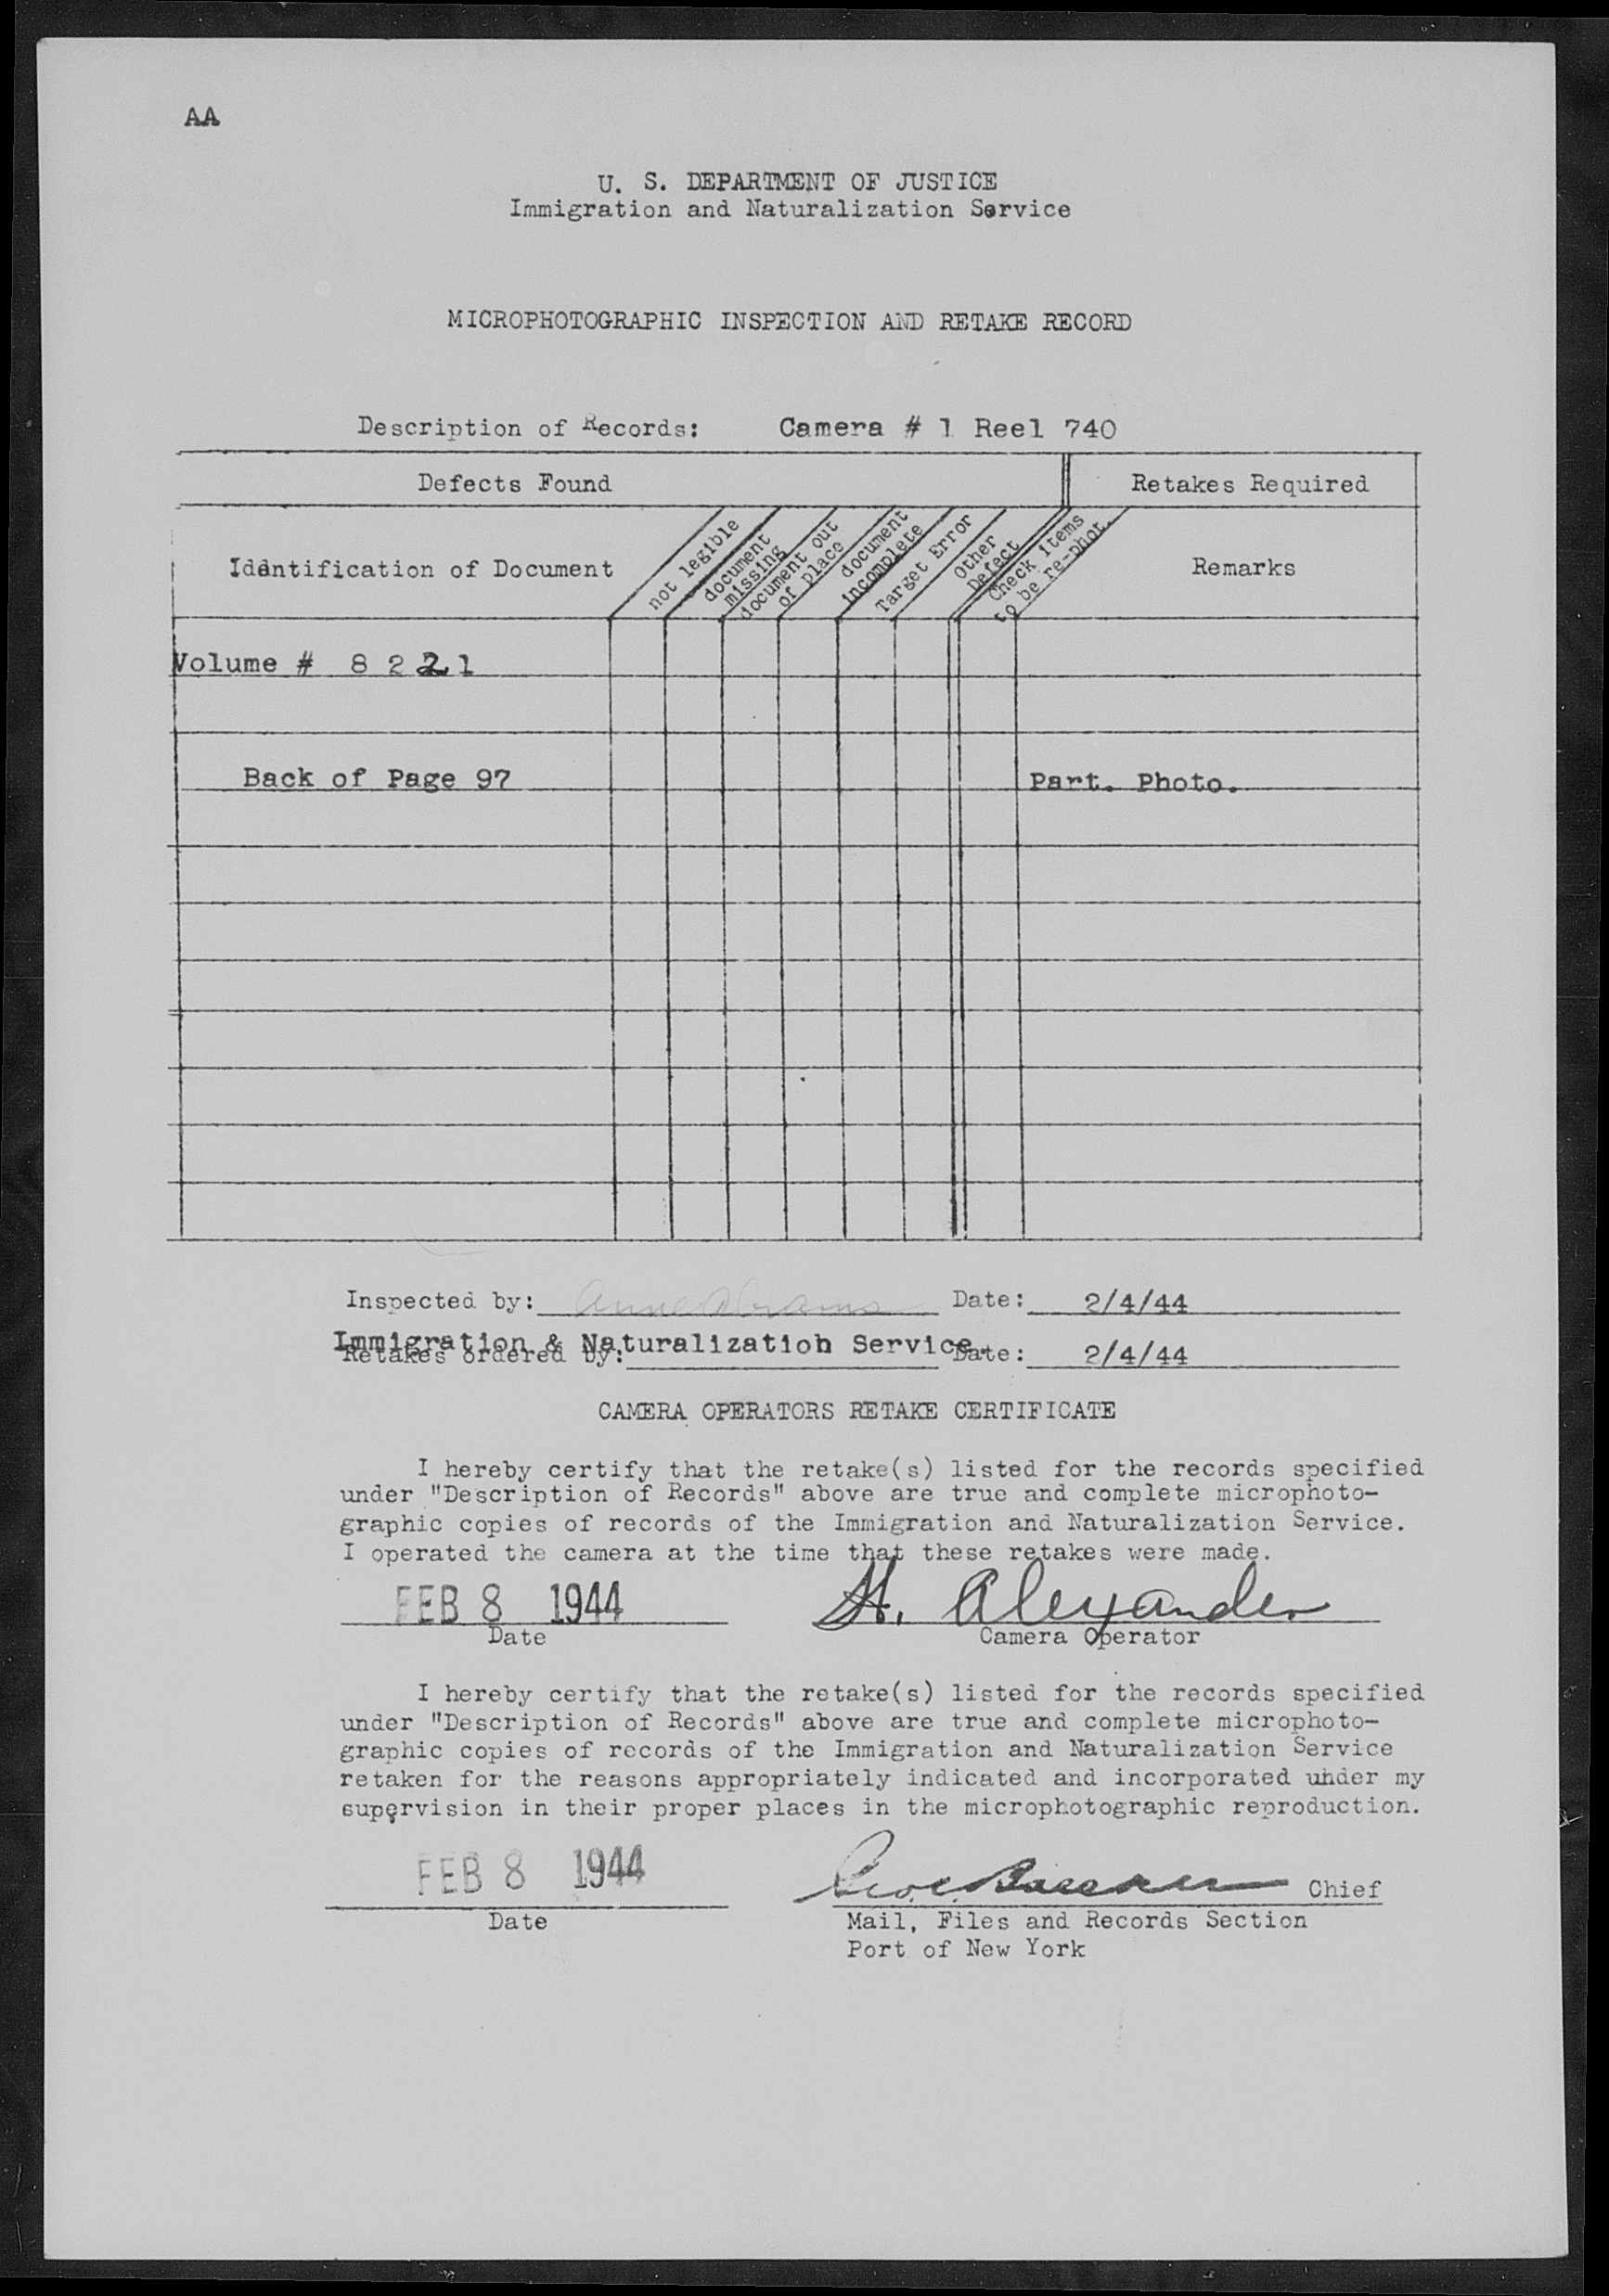 AA
U. S. DEPARTMENT OF JUSTICE
Immigration and Naturalization Service
MICROPHOTOGRAPHIC INSPECTION AND RETAKE RECORD
Description of Records: Camera # 1 Reel 740
Defects Found Retakes Required
Identification of Document
not legible
document missing
document out of place
document incomplete
Target Error
Other Defect
Check items to be re-phot.
Remarks
Volume # 8 2 2 1
Back of Page 97 Part. Photo.
Inspected by: Anne Abrams Date: 2/4/44
Immigration & Naturalization Service.
Retakes ordered by: Date: 2/4/44
CAMERA OPERATORS RETAKE CERTIFICATE
I hereby certify that the retake(s) listed for the records specified
under "Description of Records" above are true and complete microphoto-
graphic copies of records of the Immigration and Naturalization Service.
I operated the camera at the time that these retakes were made.
FEB 8 1944 H. Alexander
Date Camera Operator
I hereby certify that the retake(s) listed for the records specified
under "Description of Records" above are true and complete microphoto-
graphic copies of records of the Immigration and Naturalization Service
retaken for the reasons appropriately indicated and incorporated under my
supervision in their proper places in the microphotographic reproduction.
FEB 8 1944 Chief
Date Mail, Files and Records Section
Port of New York